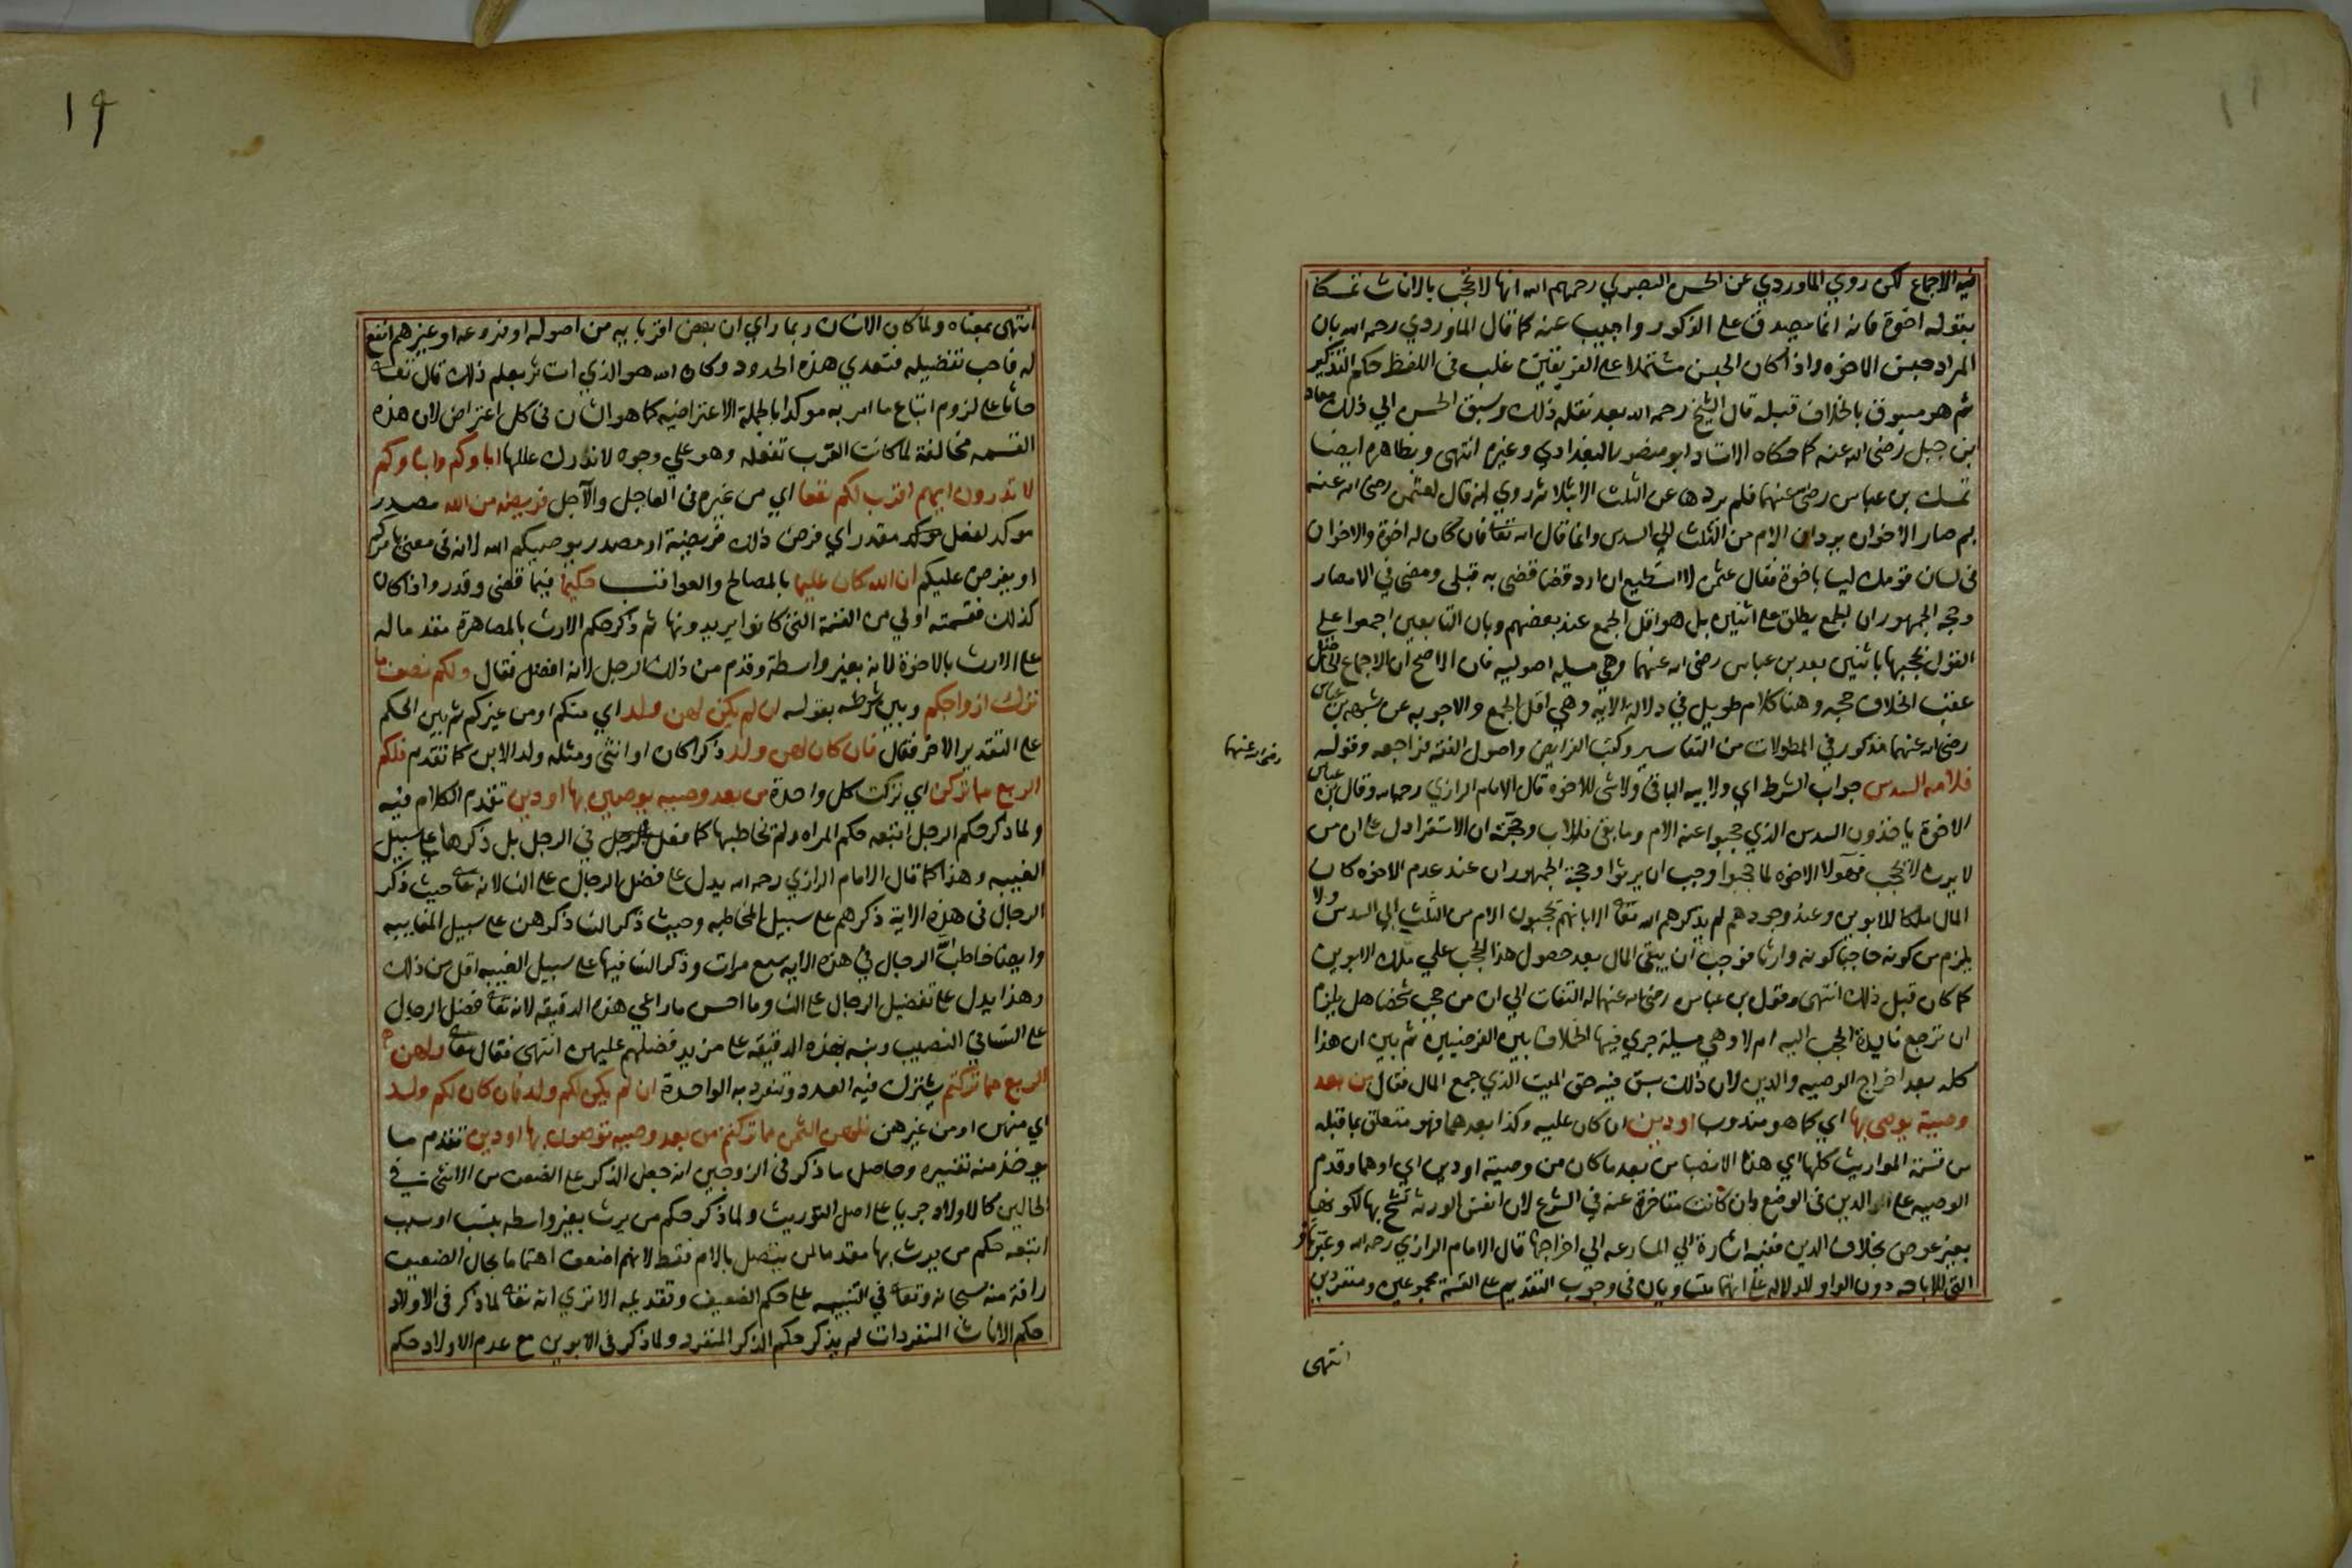 فيه الاجماع لكن روي الماوردي عن الحسن البصري رحمهم الله انها لا تحجب بالاناث تمسكا
بقوله اخوة فانه انما يصدق على الذكور واجيب عنه كما قال الماوردي رحمه الله بان
المراد جنس الاخوه واذا كان الجنس مشتملا على الفريقين غلب في اللفظ حكم التذكير
ثم هو مسبوق بالخلاف قبله قال الشيخ رحمه الله بعد نقله ذلك وسبق الحسن الي ذلك معاذ
بن جبل رضي الله عنه كما حكاه الاستاد ابو منصور البغدادي وغيره انتهى وبظاهره ايضا
تمسك بن عباس رضي عنهما فلم يردها عن الثلث الا بثلاثه روي انه قال لعثمن رضي الله عنه
بم صار الاخوان يردان الام من الثلث الي السدس وانما قال الله تعا فان كان له اخوة والاخوان
في لسان قومك ليسا باخوة فقال عثمن لا استطيع ان ارد قضا قضى به قبلي ومضى في الامصار
وحجه الجمهور ان الجمع يطلق على اثنين بل هو اقل الجمع عند بعضهم وبان التابعين اجمعوا علي
القول بحجبها باثنين بعد بن عباس رضي الله عنهما وهي مسيله اصوليه فان الاصح ان الاجماع الحاصل
عقب الخلاف حجه وهنا كلام طويل في دلالة الايه وهي اقل الجمع والاجوبه عن شبهه بن عباس
رضي الله عنهما مذكور في المطولات من التفاسير وكتب الفرايض واصول الفقه فراجعه وقوله
رضي الله عنهما
فلامه السدس جواب الشرط اي ولابيه الباقي ولا شي للاخوه قال الامام الرازي رحمه الله وقال بن عباس
الاخوة ياخذون السدس الذي حجبوا عنه الام وما بقي فللاب وحجته ان الاستقرا دل على ان من
لا يرث لا يحجب فهولا الاخوه لما حجبوا وجب ان يرثوا وحجة الجمهور ان عند عدم الاخوه كان
المال ملكا للابوين وعند وجودهم لم يذكرهم الله تعا الا بانهم يحجبون الام من الثلث الي السدس ولا
يلزم من كونه حاجبا كونه وارثا فوجب ان يبقى المال بعد حصول هذا الحجب علي ملك الابوين
كما كان قبل ذلك انتهى وقول بن عباس رضي الله عنهما له التفات الي ان من حجب شخصا هل يلزم
ان ترجع فايدة الحجب اليه ام لا وهي مسيلة جري فيها الخلاف بين الفرضيين ثم بين ان هذا
كله بعد اخراج الوصيه والدين لان ذلك سبق فيه حق الميت الذي جمع المال فقال من بعد
وصية يوصى بها اي كما هو مندوب او دين ان كان عليه وكذا بعدهما فهو متعلق بما قبله
من قسمة المواريث كلها اي هذه الانصبا من بعد ما كان من وصية او دين اي او هما وقدم
الوصيه على الدين في الوضع وان كانت متاخرة عنه في الشرع لان انفس الورثه تشح بها لكونها
بغير عوض بخلاف الدين ففيه اشارة الي المسارعه الي اخراجها قال الامام الرازي رحمه الله وعبر باو
التي للاباحه دون الواو للدلاله على انهما متساويان في وجوب التقديم على القسمة مجموعين ومنفردين
انتهى
19
انتهى بمعناه ولما كان الانسان ربما راي ان بعض اقربايه من اصوله او فروعه او غيرهم انفع
له فاحب تفضيله فتعدي هذه الحدود وكان الله هو الذي استاثر بعلم ذلك قال تعا
حاثا على لزوم اتباع ما امر به موكدا بالجملة الاعتراضيه كما هو الشان في كل اعتراض لان هذه
القسمه مخالفة لما كانت العرب تفعله وهو علي وجوه لا تدرك عللها اباوكم وابناوكم
لا تدرون ايهم اقرب لكم نفعا اي من غيره في العاجل والآجل فريضه من الله مصدر
موكد لفعل موكد مقدر اي فرض ذلك فريضة او مصدر يوصيكم الله لانه في معنى يامركم
او يفرض عليكم ان الله كان عليما بالمصالح والعواقب حكيما فيما قضى وقدر واذا كان
كذلك فقسمته اولي من القسمة التي كانوا يريدونها ثم ذكر حكم الارث بالمصاهرة مقدما له
على الارث بالاخوة لانه بغير واسطة وقدم من ذلك الرجل لانه افضل فقال ولكم نصف ما
ترك ازواجكم وبين شرطه بقوله ان لم يكن لهن ولد اي منكم او من غيركم ثم بين الحكم
على التقدير الاخر فقال فان كان لهن ولد ذكرا كان او انثى ومثله ولد الابن كما تقدم فلكم
الربع مما تركن اي تركت كل واحدة من بعد وصيه يوصين بها او دين تقدم الكلام فيه
ولما ذكر حكم الرجل اتبعه حكم المراه ولم يخاطبها كما فعل في الرجل بل ذكرها على سبيل
الغيبه وهذا كما قال الامام الرازي رحمه الله يدل على فضل الرجال على النسا لانه تعالى حيث ذكر
الرجال في هذه الاية ذكرهم على سبيل المخاطبه وحيث ذكر النسا ذكرهن على سبيل المغايبه
وايضا خاطب الله الرجال في هذه الايه سبع مرات وذكر النسا فيها على سبيل الغيبه اقل من ذلك
وهذا يدل على تفضيل الرجال على النسا وما احسن ما راعي هذه الدقيقه لانه تعا فضل الرجال
على النسا في النصيب ونبه بهذه الدقيقه على مزيد فضلهم عليهن انتهى فقال تعالى ولهن
الربع مما تركتم يشترك فيه العدد وتنفرد به الواحدة ان لم يكن لكم ولد فان كان لكم ولد
اي منهن او من غيرهن فلهن الثمن مما تركتم من بعد وصيه توصون بها او دين تقدم ما
يوخذ منه تفسيره وحاصل ما ذكر في الزوجين انه جعل الذكر على الضعف من الانثى في
الحالين كالاولاد جريا على اصل التوريث ولما ذكر حكم من يرث بغير واسطه بنسب او سبب
اتبعه حكم من يرث بها مقدما لمن يتصل بالام فقط لانهم اضعف اهتماما بحال الضعيف
رافة منه سبحانه وتعا في التنبيه على حكم الضعيف وتقديمه الا تري انه تعا لما ذكر في الاولاد
حكم الاناث المنفردات لم يذكر حكم الذكر المنفرد ولما ذكر في الابوين مع عدم الاولاد حكم